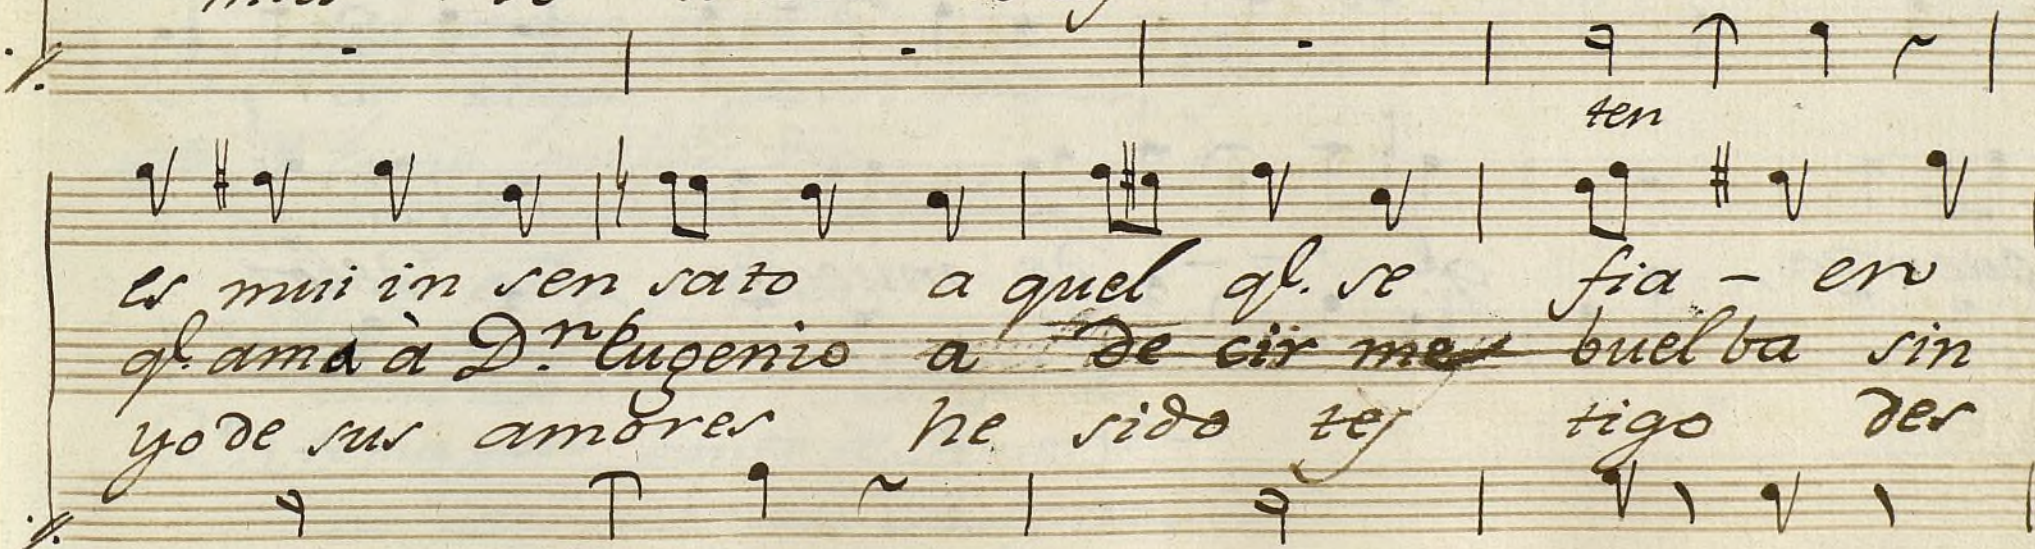 ten
es mui in sen sato a quel ql. se fia - en
ql. ama à D.n Eugenio a de cir me buelba sin
yo de sus amores he sido tes tigo des